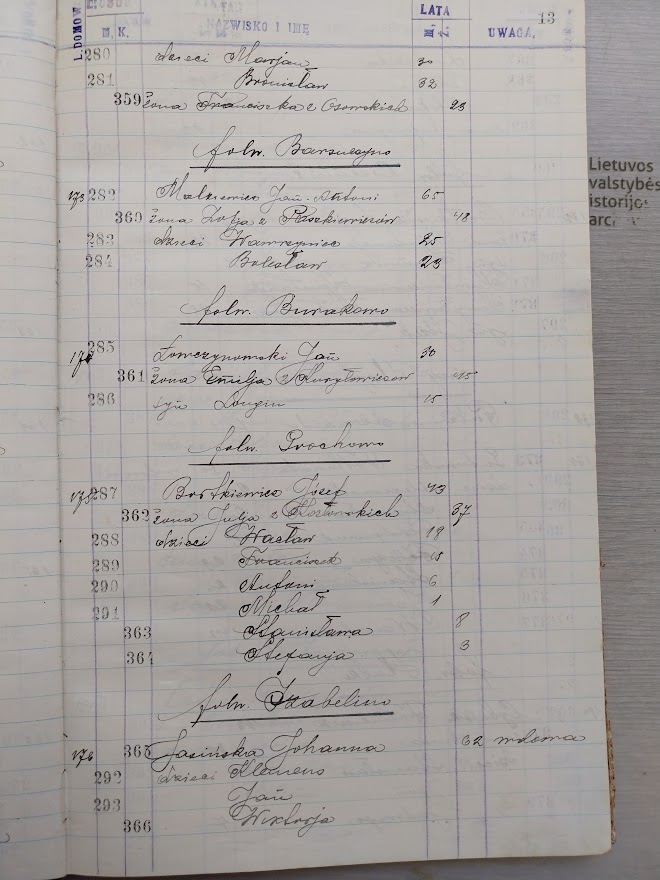 L. DOMOW
M. K.
NAZWISKO I IMIĘ
LATA
M. Ż.
UWAGA.
13
280 dzieci Marjan 30
281 Bronisław 32
359 żona Franciszka z Osowskich 23
folw.
173 282 Malkiewicz Jan-Antoni 65
360 żona Zofja z Paszkiewiczów 48
283 dzieci Wawrzyniec 25
284 Bolesław 23
folw. Burakowo
285 Jan 30
361 żona Emilja z 45
286 syn Longin 15
folw. Grochowo
175 287 Bortkiewicz Józef 43
362 żona Julja z 37
288 dzieci Wacław 18
289 Franciszek
290 Antoni 6
291 Michał 1
363 Stanisława 8
364 Stefanja 3
folw. Izabelino
176 365 Jasińska Johanna 62 wdowa
292 dzieci Klemens
293 Jan
366 Wiktorja
Lietuvos
valstybės
istorijos